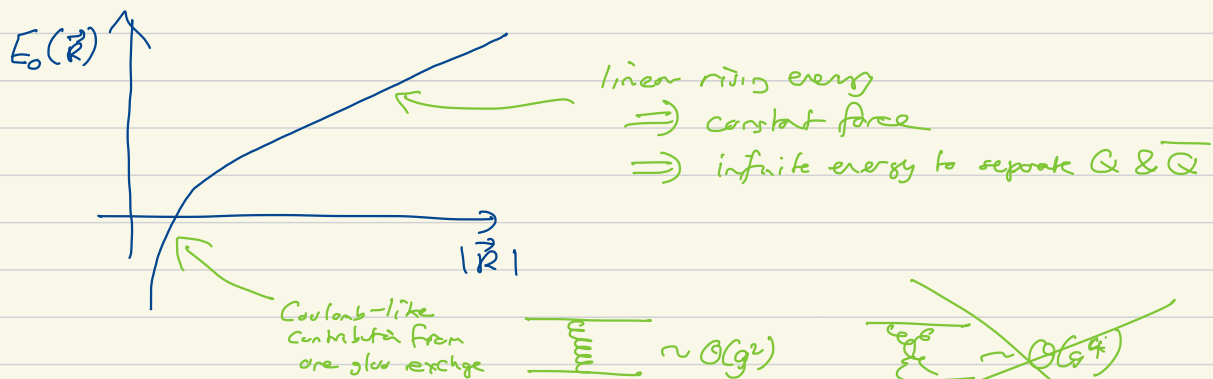 E₀(R⃗)
linear rising energy
⇒ constant force
⇒ infinite energy to separate Q & Q̅
|R⃗|
Coulomb-like
contribution from
one gluon exchange
~ O(g²)
~ O(g⁴)